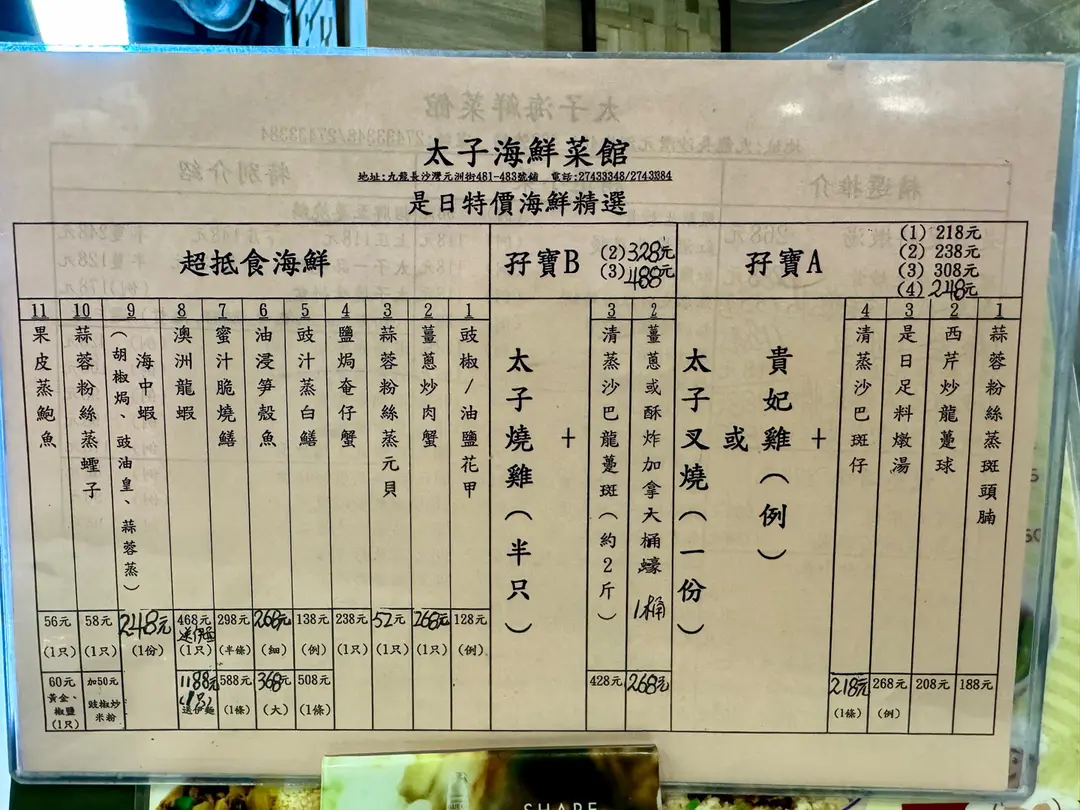 太子海鮮菜館
地址:九龍長沙灣元洲街481-483號鋪 電話:27433348/27433384
是日特價海鮮精選
孖寶A
(1) 218元
(2) 238元
(3) 308元
(4) 248元
1
蒜蓉粉絲蒸斑頭腩
188元
2
西芹炒龍躉球
208元
3
是日足料燉湯
268元
(例)
4
清蒸沙巴斑仔
218元
(1條)
+
貴妃雞(例)
或
太子叉燒(一份)
孖寶B
(2)328元
(3)488元
2
薑蔥或酥炸加拿大桶蠔 1桶
268元
3
清蒸沙巴龍躉斑(約2斤)
428元
+
太子燒雞(半只)
超抵食海鮮
1
豉椒/油鹽花甲
128元
(例)
2
薑蔥炒肉蟹
268元
(1只)
3
蒜蓉粉絲蒸元貝
52元
(1只)
4
鹽焗奄仔蟹
238元
(1只)
5
豉汁蒸白鱔
138元
(例)
508元
(1條)
6
油浸笋殼魚
268元
(細)
368元
(大)
7
蜜汁脆燒鱔
298元
(半條)
588元
(1條)
8
澳洲龍蝦
468元
送伊麵
(1只)
1188元
送伊麵
9
海中蝦
(胡椒焗、豉油皇、蒜蓉蒸)
248元
(1份)
10
蒜蓉粉絲蒸蟶子
58元
(1只)
加50元
豉椒炒
米粉
11
果皮蒸鮑魚
56元
(1只)
60元
黃金、
椒鹽
(1只)
SHARE